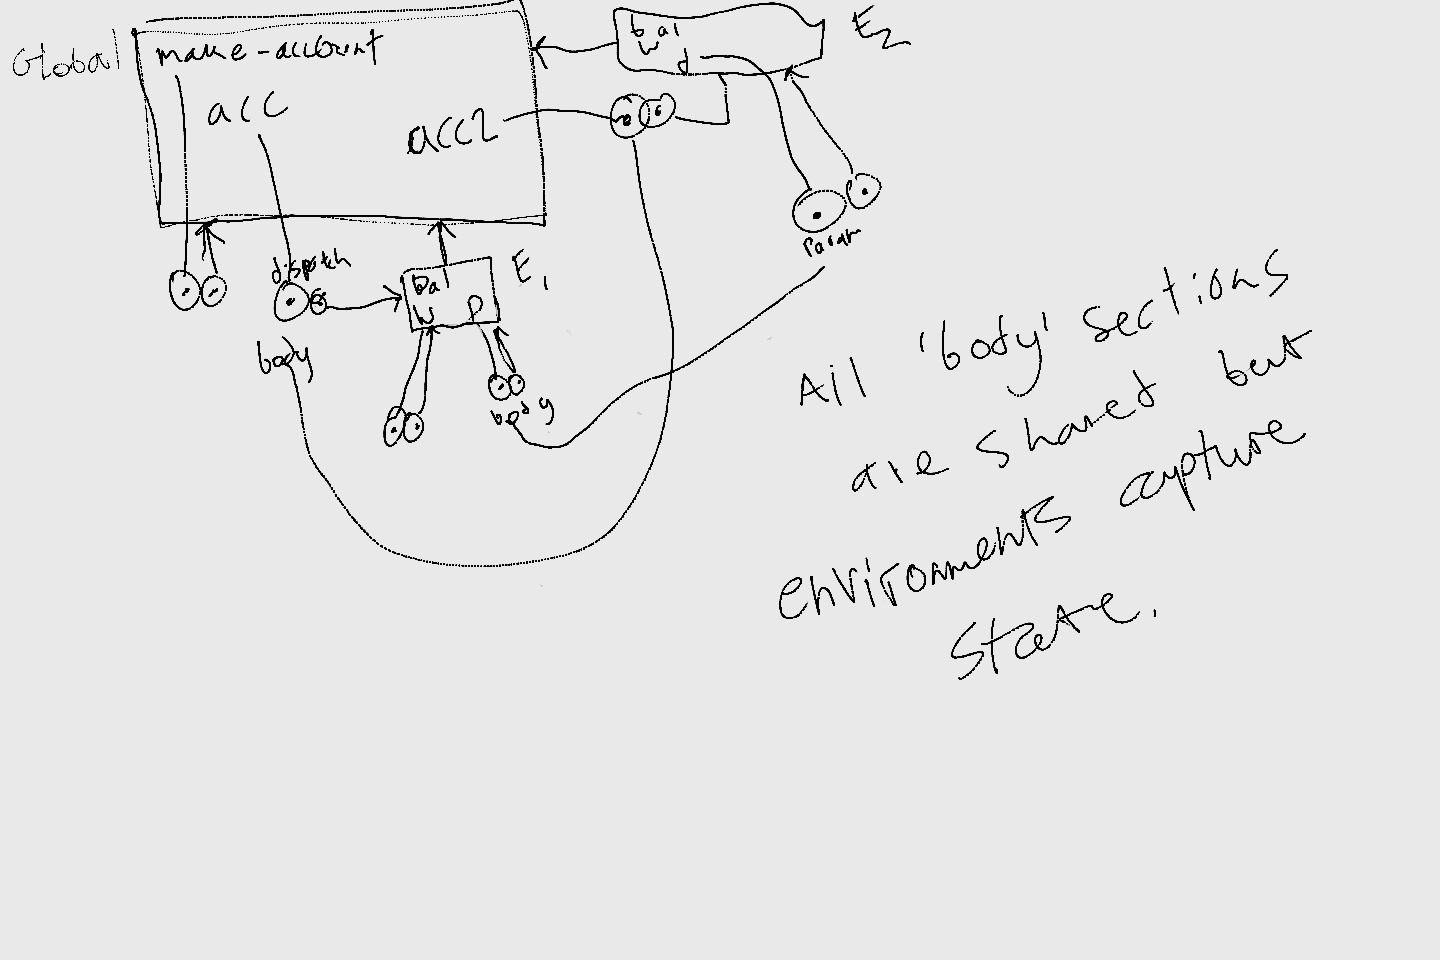 Global
make-account
acc
acc2
bal
w
d
E2
param
dispatch
Bal
W D
E1
body
body
All 'body' sections
are shared but
environments capture
state.